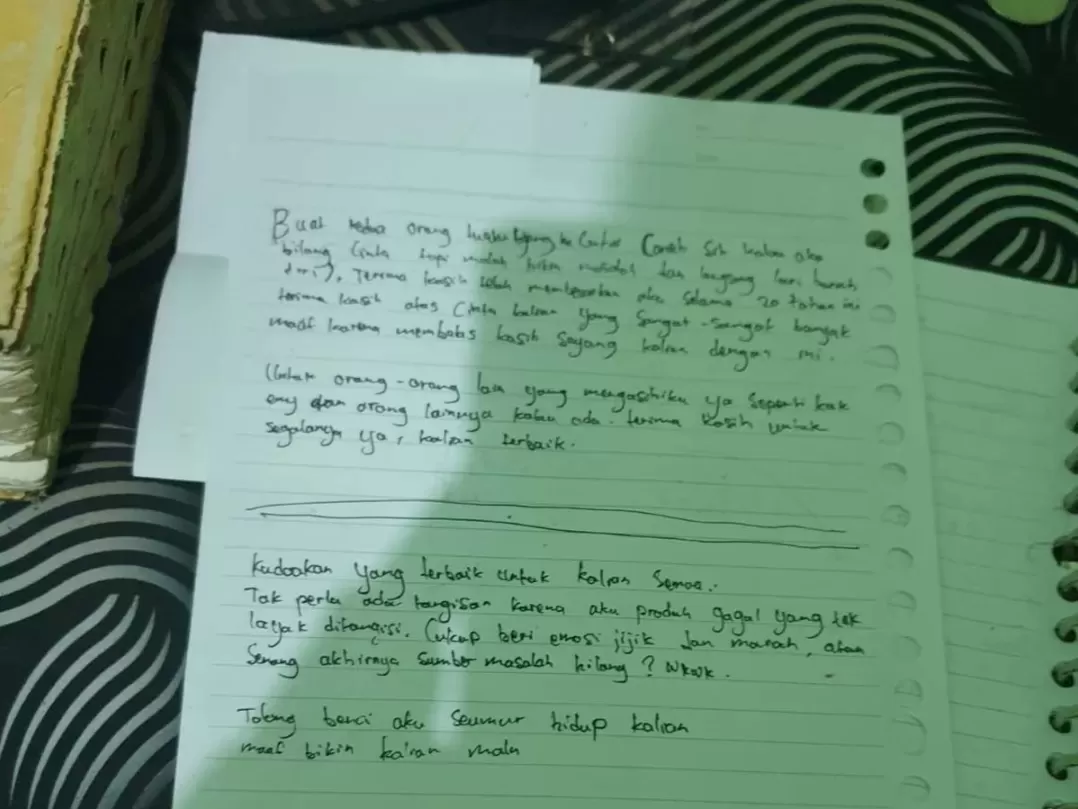 Buat kedua orang tuaku yang ku cintai (aneh sih kalau aku
bilang cinta tapi malah bikin masalah dan langsung lari bunuh
diri), Terima kasih telah membesarkan aku selama 20 tahun ini
terima kasih atas cinta kalian yang sangat-sangat banyak
maaf karena membalas kasih sayang kalian dengan ini.
Untuk orang-orang lain yang mengasihiku ya seperti kak
emy dan orang lainnya kalau ada. terima kasih untuk
segalanya ya, kalian terbaik.
Kudoakan yang terbaik untuk kalian semua.
Tak perlu ada tangisan karena aku produk gagal yang tak
layak ditangisi. Cukup beri emosi jijik dan marah, atau
Senang akhirnya sumber masalah hilang? Wkwk.
Tolong benci aku seumur hidup kalian
maaf bikin kalian malu